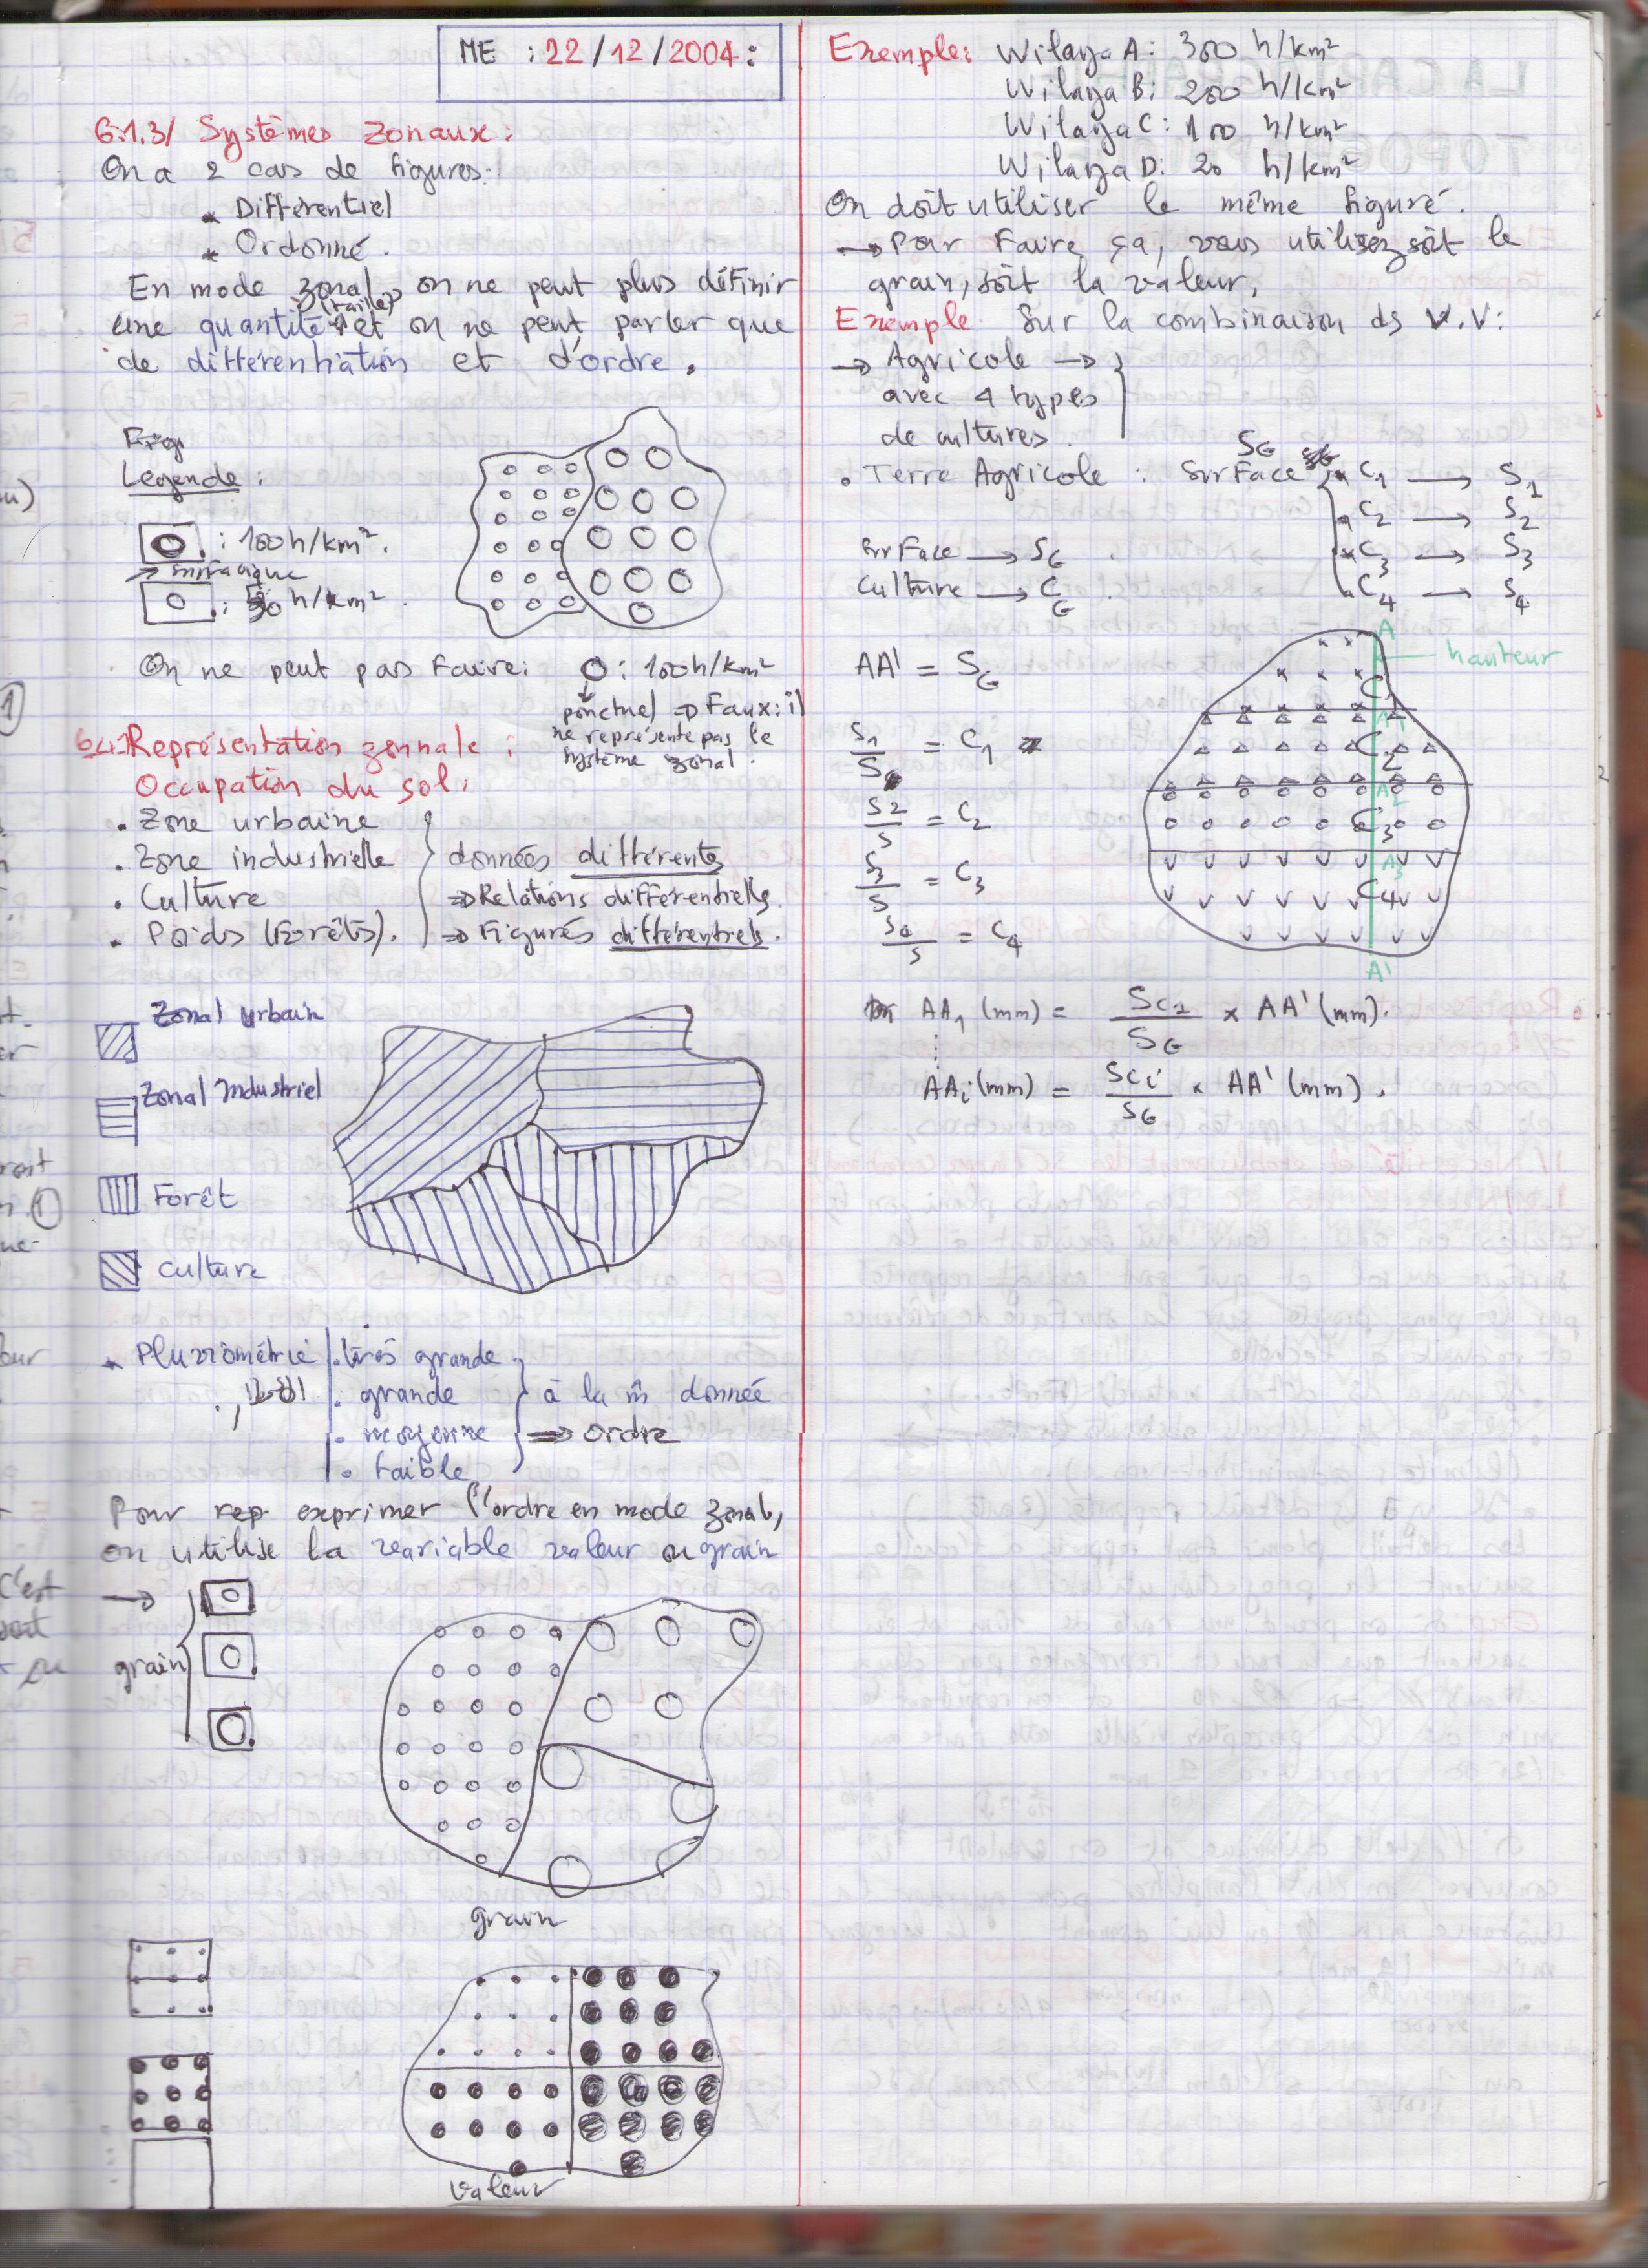 ME : 22/12/2004 :
6.1.3/ Systèmes Zonaux :
On a 2 cas de figures :
* Différentiel
* Ordonné.
En mode zonal, on ne peut plus définir
une quantité (taille) et on ne peut parler que
de différentiation et d'ordre.
Fig
Legende :
: 100h/km².
: 50 h/km².
On ne peut pas Faire : O : 100h/km²
ponctuel => Faux : il
ne représente pas le
système zonal.
Représentation zonnale :
Occupation du sol.
. Zone urbaine
. Zone industrielle
. Culture
. Poids (Forêts).
données différentes
=> Relations différentielles.
=> Figurés différentiels.
Zonal urbain
Zonal Industriel
Forêt
Culture
* Pluviométrie
. très grande
. grande
. moyenne
. faible
à la m̂ donnée
=> ordre
Pour exprimer l'ordre en mode zonal,
on utilise la variable valeur ou grain
→
grain
grain
valeur
Exemple : Wilaya A : 300 h/km²
Wilaya B : 200 h/km²
Wilaya C : 100 h/km²
Wilaya D : 20 h/km²
On doit utiliser le même figuré.
→ Pour Faire ça, vous utilisez soit le
grain, soit la valeur,
Exemple Sur la combinaison ds V.V :
→ Agricole →
avec 4 types
de cultures.
. Terre Agricole : Surface SG
C1 → S1
C2 → S2
C3 → S3
C4 → S4
Surface → SG
Culture → CG
AA' = SG
S1/S = C1
S2/S = C2
S3/S = C3
S4/S = C4
A
hauteur
C1
A1
C2
A2
C3
A3
C4
A'
AA1 (mm) = SC1/SG × AA' (mm).
AAi (mm) = SCi/SG × AA' (mm).